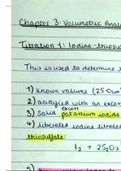 Chapter 3: Volumetric Anal
Titration 1: Iodine-thiosu
This is used to determine
1) known volume (25.0cm³
2) acidified with an excess
3) Solid potassium iodide
4) liberated iodine titrated
thiosulfate:
I₂ + 2S₂O₃